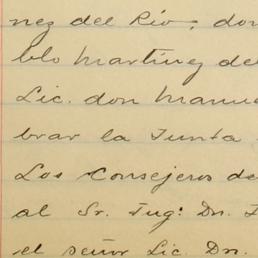 nez del Río; don
blo Martínez del
Lic. don Manue
brar la Junta
Los Consejeros de
al Sr. Ing: Dn.
el señor Lic. Dn.